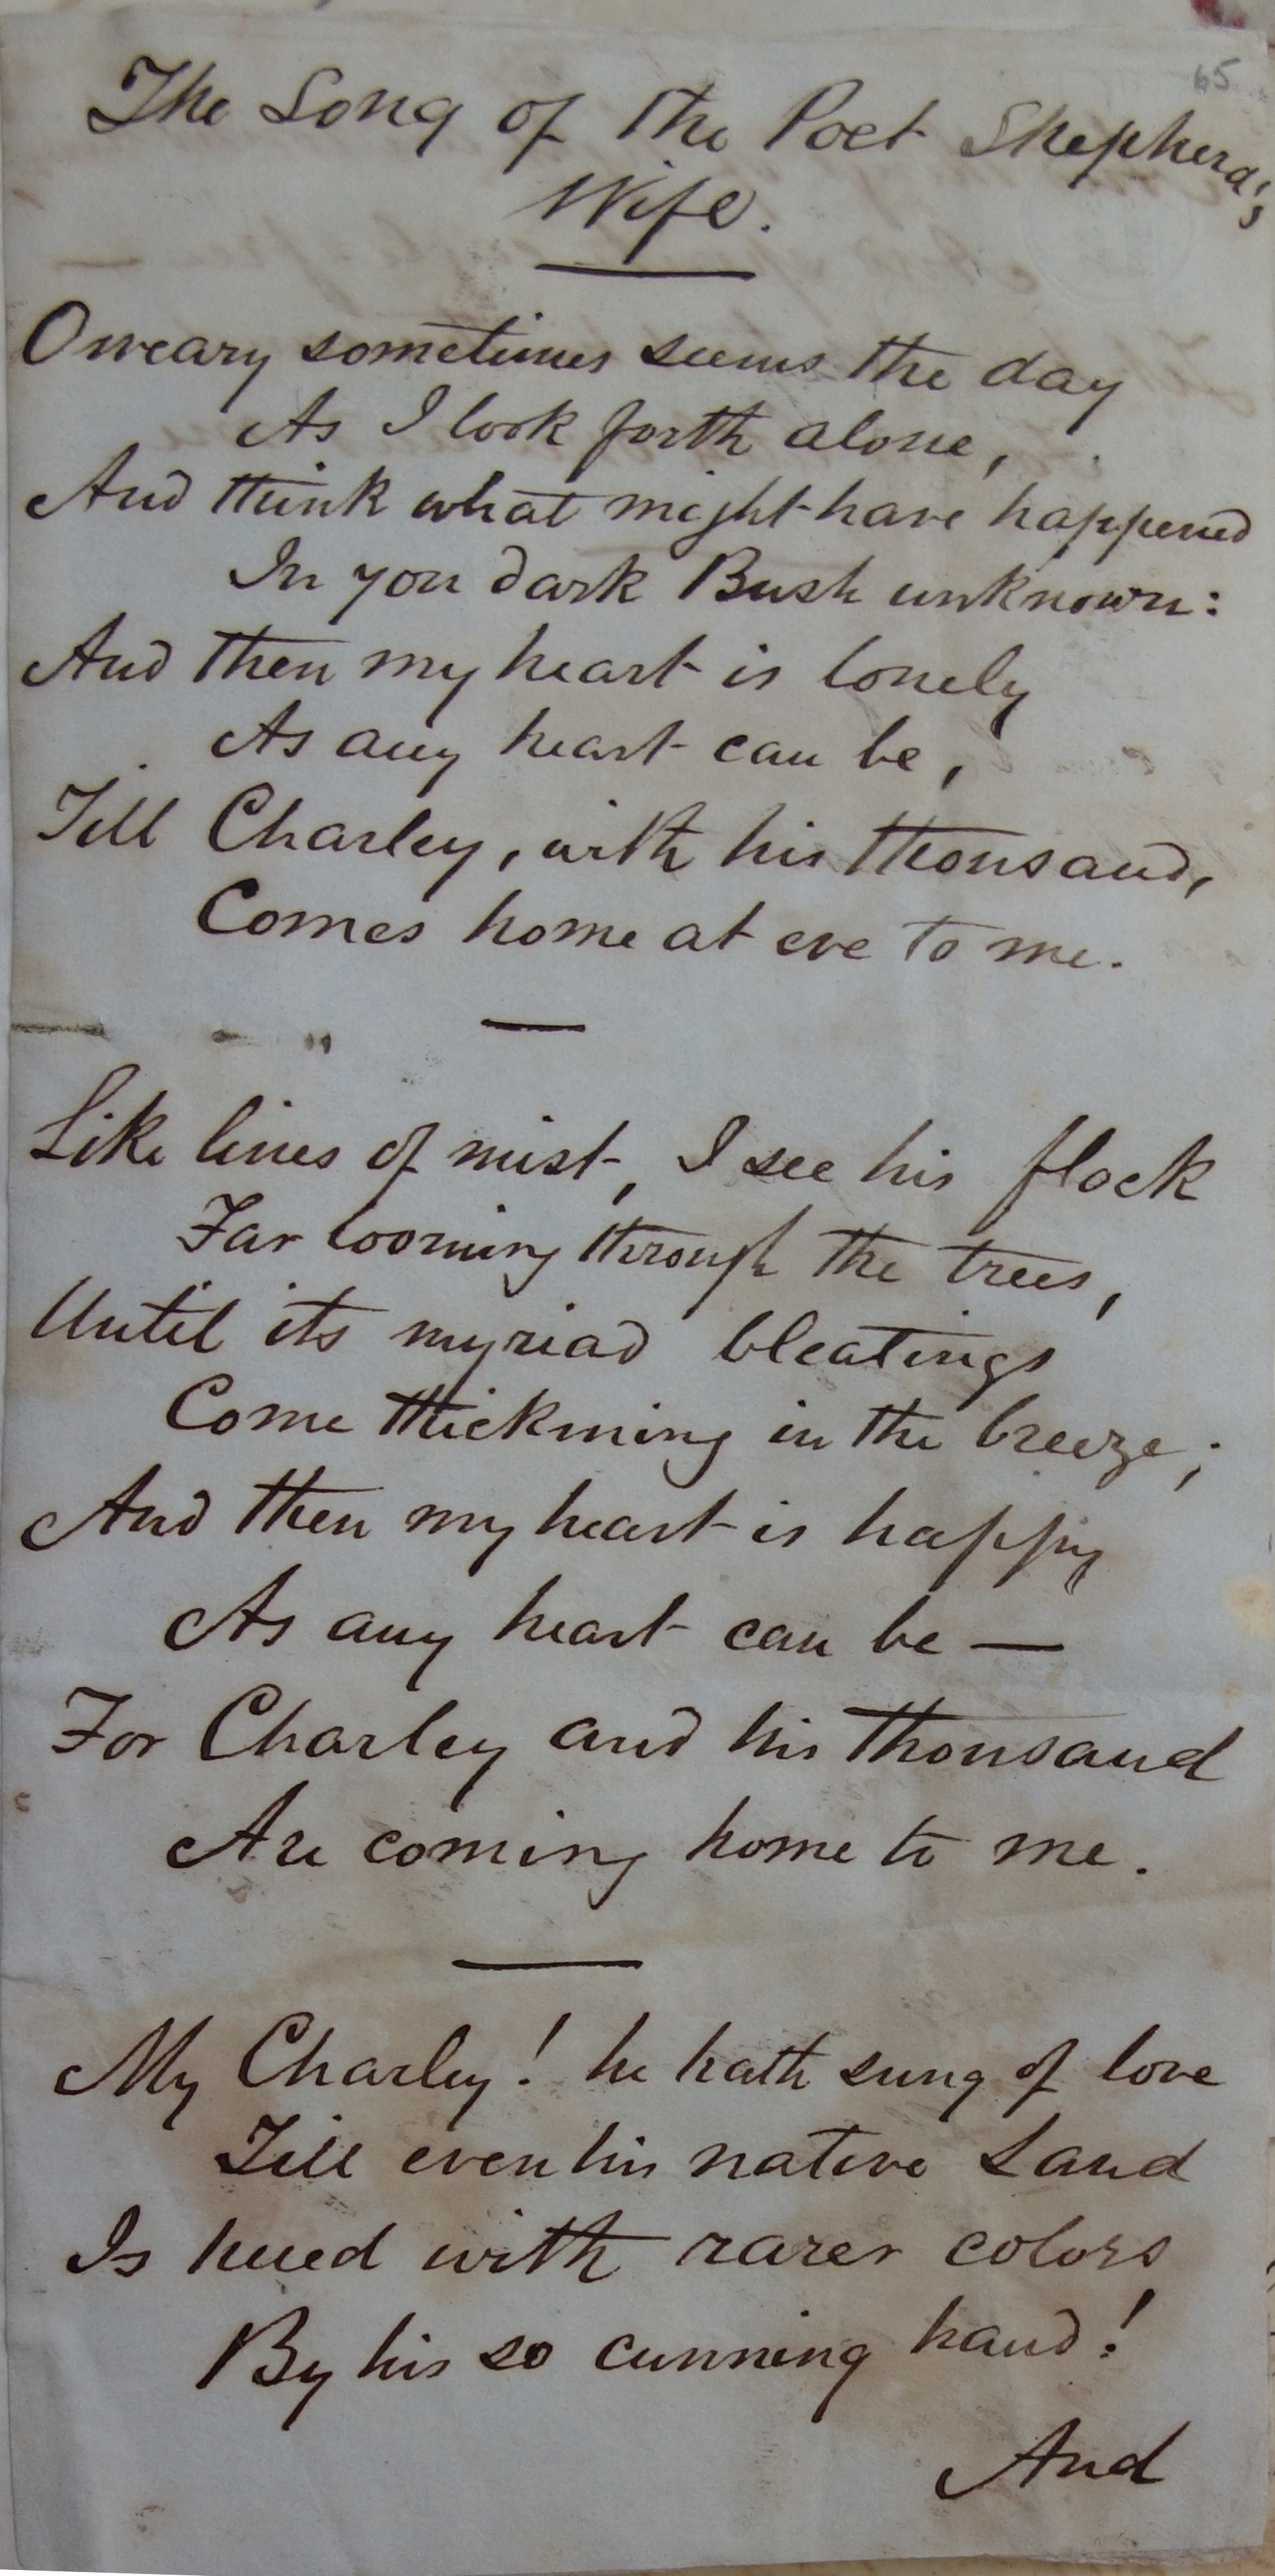 65
The Song of the Poet Shepherd's
Wife.
O weary sometimes seems the day
As I look forth alone,
And think what might have happened
In yon dark Bush unknown:
And then my heart is lonely
As any heart can be,
Till Charley, with his thousand,
Comes home at eve to me.
Like lines of mist, I see his flock
Far looming through the trees,
Until its myriad bleatings
Come thickening in the breeze;
And then my heart is happy
As any heart can be —
For Charley and his thousand
Are coming home to me.
My Charley! he hath sung of love
Till even his native Land
Is hued with rarer colors
By his so cunning hand!
And